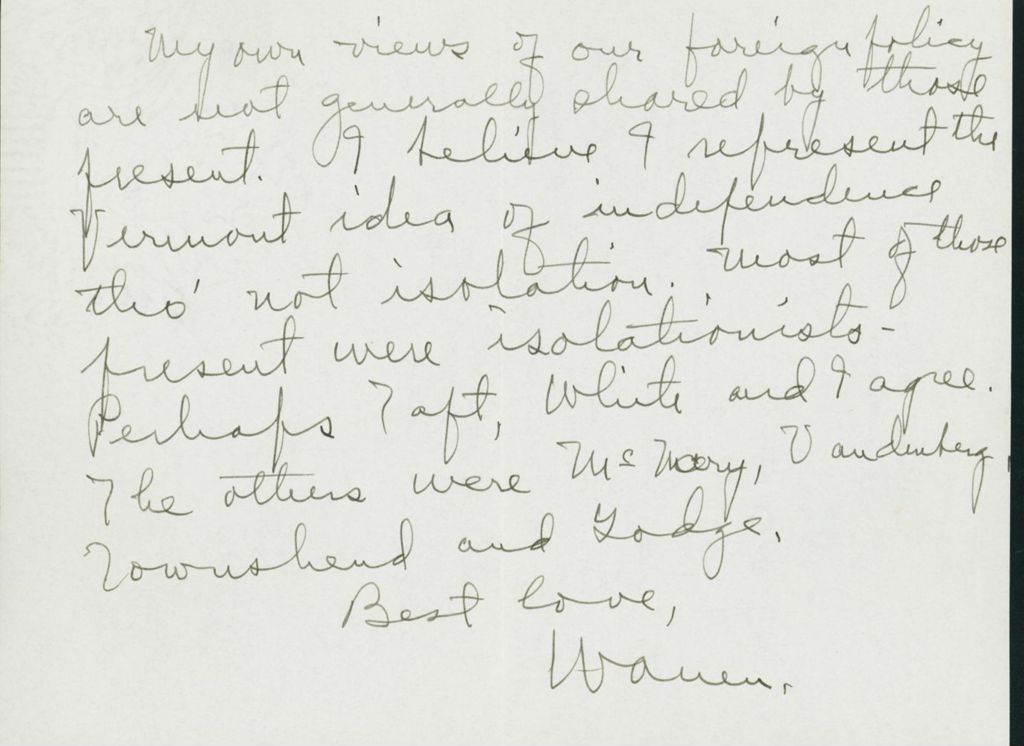 My own views of our foreign policy
are not generally shared by those
present. I believe I represent the
Vermont idea of independence
tho' not isolation. Most of those
present were isolationists-
Perhaps Taft, White and I agree.
The others were McNary, Vandenberg,
Townshend and Lodge.
Best love,
Warren.